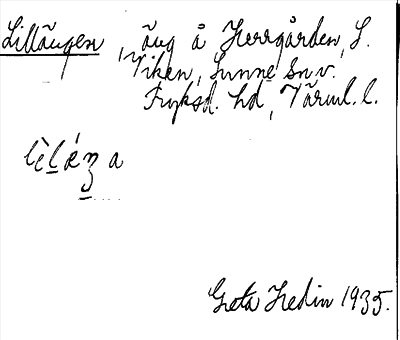 Lillängen, äng å Herrgården, S.
Viken, Sunne sn v.
Fryksd. hd, Värml. l.
Greta Hedin 1935.